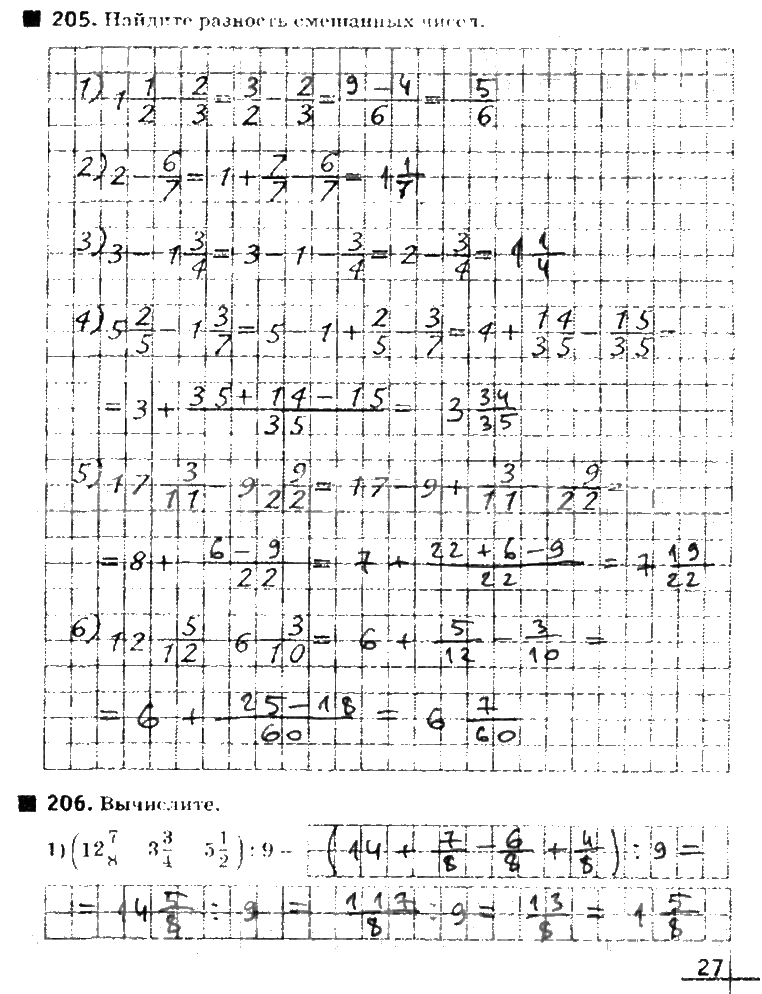 205. Найдите разность смешанных чисел.
1) 1 1/2 - 2/3 = 3/2 - 2/3 = (9 - 4)/6 = 5/6
2) 2 - 6/7 = 1 + 7/7 - 6/7 = 1 1/7
3) 3 - 1 3/4 = 3 - 1 - 3/4 = 2 - 3/4 = 1 1/4
4) 5 2/5 - 1 3/7 = 5 - 1 + 2/5 - 3/7 = 4 + 14/35 - 15/35 =
= 3 + (35 + 14 - 15)/35 = 3 34/35
5) 17 3/11 - 9 9/22 = 17 - 9 + 3/11 - 9/22 =
= 8 + (6 - 9)/22 = 7 + (22 + 6 - 9)/22 = 7 19/22
6) 12 5/12 - 6 3/10 = 6 + 5/12 - 3/10 =
= 6 + (25 - 18)/60 = 6 7/60
206. Вычислите.
1) (12 7/8 3 3/4 5 1/2) : 9 = (14 + 7/8 - 6/8 + 4/8) : 9 =
= 14 5/8 : 9 = 117/8 : 9 = 13/8 = 1 5/8
27